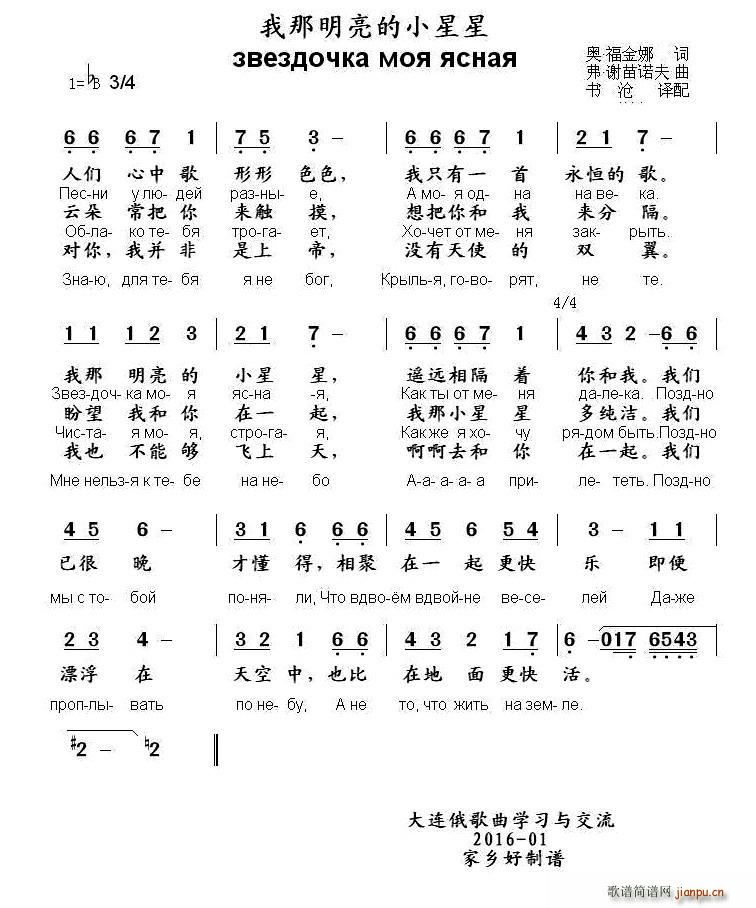 我那明亮的小星星
звездочка моя ясная
奥·福金娜 词
弗·谢苗诺夫 曲
书 沧 译配
1=♭B 3/4
6 6 6 7 1 | 7 5 3 – | 6 6 6 7 1 | 2 1 7 – |
人们 心中 歌 形形 色色, 我只有一 首 永恒的 歌。
Пес-ни у лю-дей раз-ны- е, А мо- я од-на на ве- ка.
云朵 常把 你 来触 摸, 想把你和 我 来分 隔。
Об-ла- ко те-бя тро-га- ет, Хо-чет от ме- ня зак- рыть.
对你, 我并 非 是上 帝, 没有天使 的 双 翼。
Зна-ю, для те- бя я не бог, Крыль-я, го-во- рят, не те.
4/4
1 1 1 2 3 | 2 1 7 – | 6 6 6 7 1 | 4 3 2 – 6 6 |
我那 明亮 的 小星 星, 遥远相隔 着 你和 我。我们
Звез-доч- ка мо- я яс-на -я, Как ты от ме- ня да-ле-ка. Позд-но
盼望 我和 你 在一 起, 我那小星 星 多纯 洁。我们
Чис-та- я мо- я, стро-га- я, Как же я хо- чу ря-дом быть. Позд-но
我也 不能 够 飞上 天, 啊啊去和 你 在一 起。我们
Мне нельз-я к те- бе на не- бо А-а- а- а при- ле- теть. Позд-но
4 5 6 – | 3 1 6 6 6 | 4 5 6 5 4 | 3 – 1 1 |
已很 晚 才懂 得, 相聚 在一 起 更快 乐 即便
мы с то- бой по-ня- ли, Что вдво-ём вдвой-не ве-се- лей Да-же
2 3 4 – | 3 2 1 6 6 | 4 3 2 1 7 | 6 – 017 6543 |
漂浮 在 天空 中, 也比 在地 面 更快 活。
проп-лы- вать по не- бу, А не то, что жить на зем- ле.
♯2 – ♮2 ‖
大连俄歌曲学习与交流
2016-01
家乡好制谱
歌谱简谱网 jianpu.cn